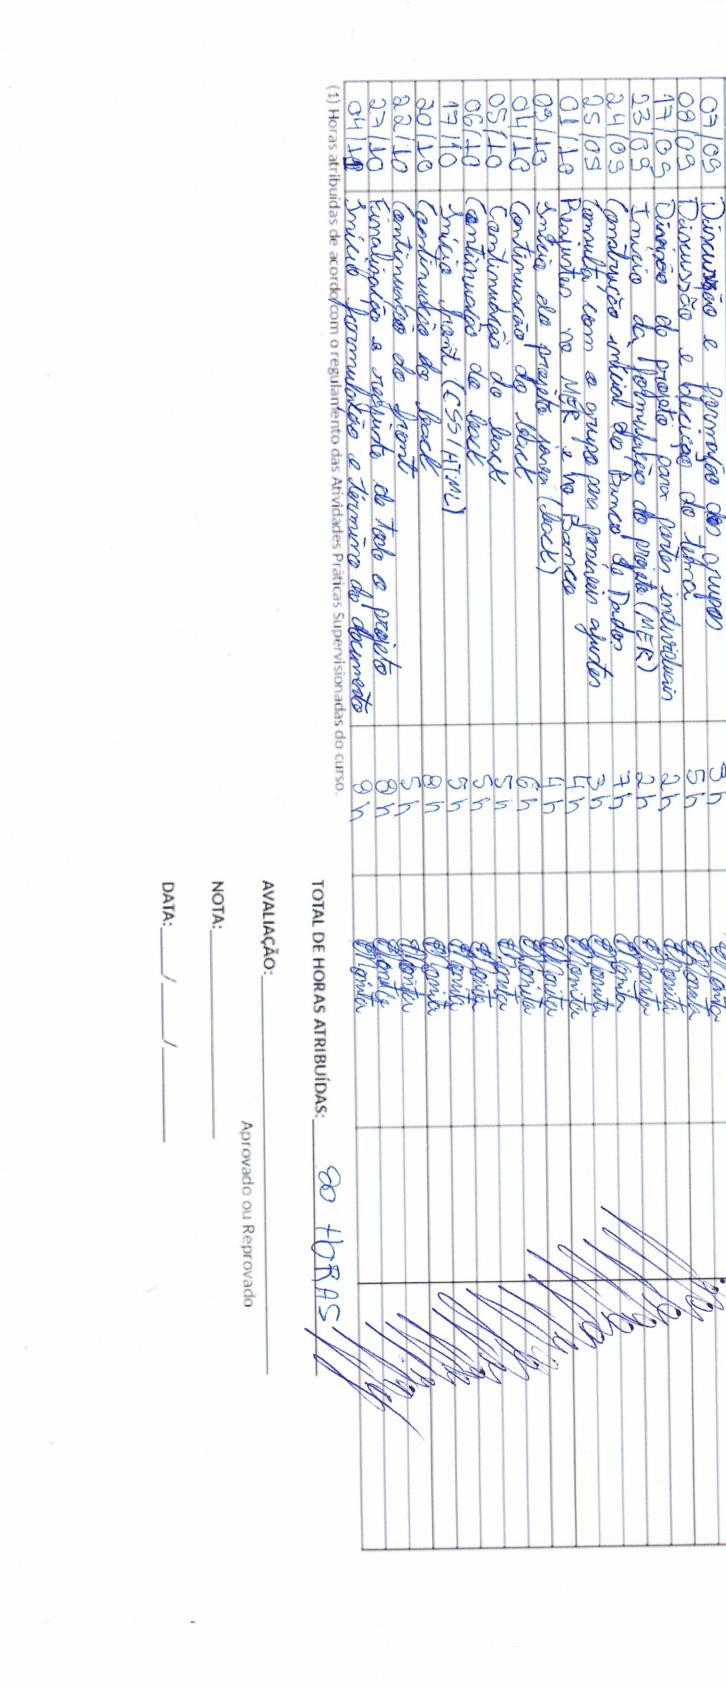 07/09 Discussão e formação dos grupos 3h
08/09 Discussão e decisão do tema 5h
17/09 Divisão do projeto para partes individuais 2h
23/09 Início da formulação do projeto (MER) 2h
24/09 Construção inicial do Banco de Dados 7h
25/09 Consulta com o grupo para possíveis ajustes 3h
01/10 Reajustes no MER e no Banco 4h
03/10 Início do projeto (back) 4h
04/10 Continuação do back 6h
05/10 Continuação do back 5h
06/10 Continuação do back 5h
17/10 Início front (CSS/HTML) 5h
20/10 Continuação do back 8h
22/10 Continuação do front 5h
27/10 Finalização e reajuste de todo o projeto 8h
04/11 Início formulação e término do documento 9h
(1) Horas atribuídas de acordo com o regulamento das Atividades Práticas Supervisionadas do curso.
TOTAL DE HORAS ATRIBUÍDAS: 80 HORAS
AVALIAÇÃO:
Aprovado ou Reprovado
NOTA:
DATA: / /